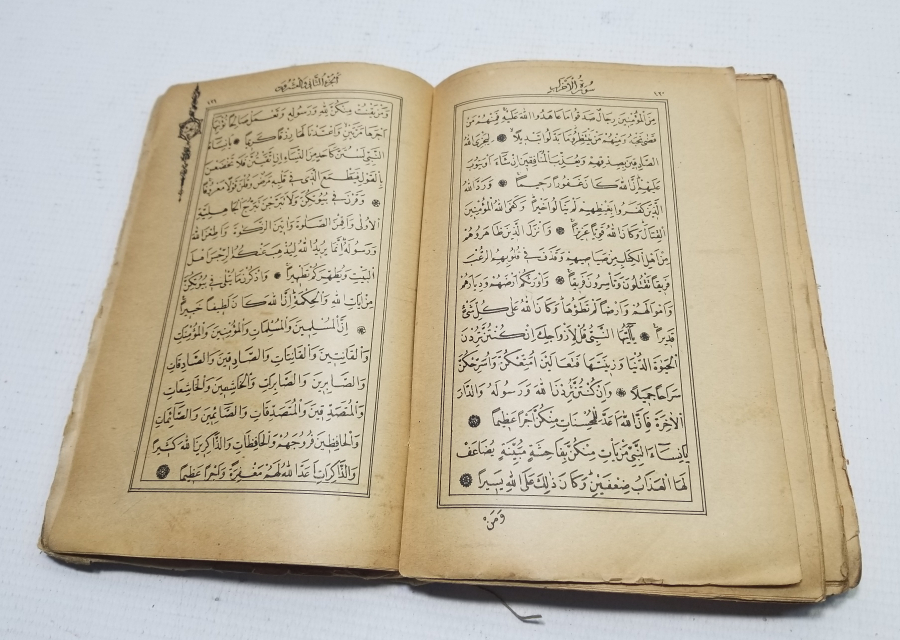 سُورَةُ الْاَحْزَابِ
مِنَ الْمُؤْمِنِينَ رِجَالٌ صَدَقُوا مَا عَاهَدُوا اللّٰهَ عَلَيْهِ فَمِنْهُمْ مَنْ
قَضٰى نَحْبَهُ وَمِنْهُمْ مَنْ يَنْتَظِرُ وَمَا بَدَّلُوا تَبْدِيلًا لِيَجْزِيَ اللّٰهُ
الصَّادِقِينَ بِصِدْقِهِمْ وَيُعَذِّبَ الْمُنَافِقِينَ اِنْ شَاءَ اَوْ يَتُوبَ
عَلَيْهِمْ اِنَّ اللّٰهَ كَانَ غَفُورًا رَحِيمًا وَرَدَّ اللّٰهُ
الَّذِينَ كَفَرُوا بِغَيْظِهِمْ لَمْ يَنَالُوا خَيْرًا وَكَفَى اللّٰهُ الْمُؤْمِنِينَ
الْقِتَالَ وَكَانَ اللّٰهُ قَوِيًّا عَزِيزًا وَاَنْزَلَ الَّذِينَ ظَاهَرُوهُمْ
مِنْ اَهْلِ الْكِتَابِ مِنْ صَيَاصِيهِمْ وَقَذَفَ فِى قُلُوبِهِمُ الرُّعْبَ
فَرِيقًا تَقْتُلُونَ وَتَاْسِرُونَ فَرِيقًا وَاَوْرَثَكُمْ اَرْضَهُمْ وَدِيَارَهُمْ
وَاَمْوَالَهُمْ وَاَرْضًا لَمْ تَطَؤُهَا وَكَانَ اللّٰهُ عَلٰى كُلِّ شَيْءٍ
قَدِيرًا يَا اَيُّهَا النَّبِىُّ قُلْ لِاَزْوَاجِكَ اِنْ كُنْتُنَّ تُرِدْنَ
الْحَيٰوةَ الدُّنْيَا وَزِينَتَهَا فَتَعَالَيْنَ اُمَتِّعْكُنَّ وَاُسَرِّحْكُنَّ
سَرَاحًا جَمِيلًا وَاِنْ كُنْتُنَّ تُرِدْنَ اللّٰهَ وَرَسُولَهُ وَالدَّارَ
الْاٰخِرَةَ فَاِنَّ اللّٰهَ اَعَدَّ لِلْمُحْسِنَاتِ مِنْكُنَّ اَجْرًا عَظِيمًا
يَا نِسَاءَ النَّبِىِّ مَنْ يَاْتِ مِنْكُنَّ بِفَاحِشَةٍ مُبَيِّنَةٍ يُضَاعَفْ
لَهَا الْعَذَابُ ضِعْفَيْنِ وَكَانَ ذٰلِكَ عَلَى اللّٰهِ يَسِيرًا
وَمَنْ
اَلْجُزْءُ الثَّانِى وَالْعِشْرُونَ
وَمَنْ يَقْنُتْ مِنْكُنَّ لِلّٰهِ وَرَسُولِهِ وَتَعْمَلْ صَالِحًا نُؤْتِهَا
اَجْرَهَا مَرَّتَيْنِ وَاَعْتَدْنَا لَهَا رِزْقًا كَرِيمًا يَا نِسَاءَ
النَّبِىِّ لَسْتُنَّ كَاَحَدٍ مِنَ النِّسَاءِ اِنِ اتَّقَيْتُنَّ فَلَا تَخْضَعْنَ
بِالْقَوْلِ فَيَطْمَعَ الَّذِى فِى قَلْبِهِ مَرَضٌ وَقُلْنَ قَوْلًا مَعْرُوفًا
وَقَرْنَ فِى بُيُوتِكُنَّ وَلَا تَبَرَّجْنَ تَبَرُّجَ الْجَاهِلِيَّةِ
الْاُولٰى وَاَقِمْنَ الصَّلٰوةَ وَاٰتِينَ الزَّكٰوةَ وَاَطِعْنَ اللّٰهَ
وَرَسُولَهُ اِنَّمَا يُرِيدُ اللّٰهُ لِيُذْهِبَ عَنْكُمُ الرِّجْسَ اَهْلَ
الْبَيْتِ وَيُطَهِّرَكُمْ تَطْهِيرًا وَاذْكُرْنَ مَا يُتْلٰى فِى بُيُوتِكُنَّ
مِنْ اٰيَاتِ اللّٰهِ وَالْحِكْمَةِ اِنَّ اللّٰهَ كَانَ لَطِيفًا خَبِيرًا
اِنَّ الْمُسْلِمِينَ وَالْمُسْلِمَاتِ وَالْمُؤْمِنِينَ وَالْمُؤْمِنَاتِ
وَالْقَانِتِينَ وَالْقَانِتَاتِ وَالصَّادِقِينَ وَالصَّادِقَاتِ
وَالصَّابِرِينَ وَالصَّابِرَاتِ وَالْخَاشِعِينَ وَالْخَاشِعَاتِ
وَالْمُتَصَدِّقِينَ وَالْمُتَصَدِّقَاتِ وَالصَّائِمِينَ وَالصَّائِمَاتِ
وَالْحَافِظِينَ فُرُوجَهُمْ وَالْحَافِظَاتِ وَالذَّاكِرِينَ اللّٰهَ كَثِيرًا
وَالذَّاكِرَاتِ اَعَدَّ اللّٰهُ لَهُمْ مَغْفِرَةً وَاَجْرًا عَظِيمًا